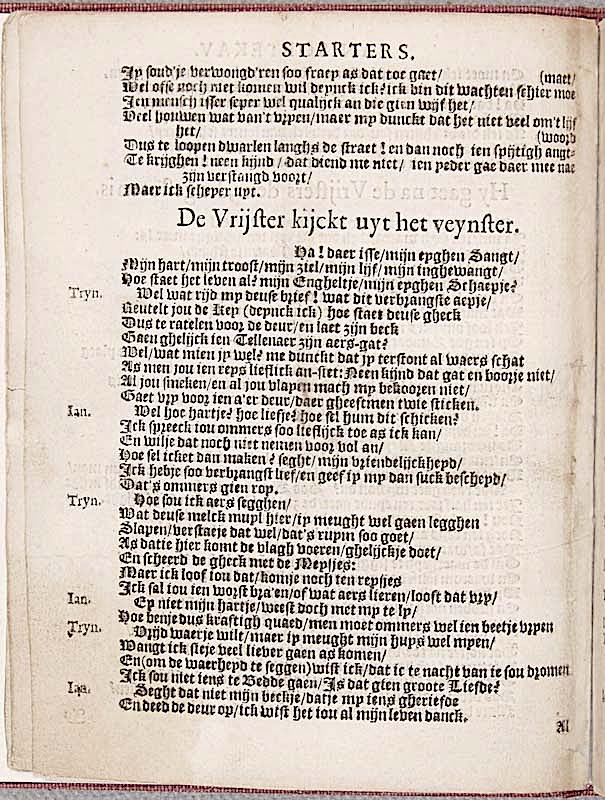 STARTERS.
Jy soud'je verwongd'ren soo fraey as dat toe gaet/ (maet/
Wel ofse noch niet komen wil denck ick? ick bin dit wachten schier moe
Jen mensch isser seper wel qualijck an die gien wijf het/
Veel houwen wat van't vryen/maer my dunckt dat het niet veel om't lijf
het/ (woord
Dus te loopen dwarlen langhs de straet! en dan noch ien spijtigh angt-
Te krijghen! neen kijnd/dat diend me niet/ ien yeder gae daer mee nae
zijn verstangd voort/
Maer ick scheyer uyt.
De Vrijster kijckt uyt het veynster.
Ha! daer isse/mijn eyghen Sangt/
Mijn hart/mijn troost/mijn ziel/mijn lijf/mijn inghewangt/
Hoe staet het leven al? mijn Engheltje/mijn eyghen Schaepje?
Tryn. Wel wat rijd my deuse brief! wat dit verbrangste aepje/
Reutelt jou de Key (denck ick) hoe staet deuse gheck
Dus te ratelen voor de deur/en laet zijn beck
Gaen ghelijck ien Tellenaer zijn aers-gat?
Wel/wat mien jy wel? me dunckt dat jy terstont al waers schat
As men jou ien reys lieflick an-siet: Neen kijnd dat gat en boorje niet/
Al jou smeken/en al jou vlayen mach my bekooren niet/
Gaet vry voor ien a'er deur/daer gheestmen twie sticken.
Ian. Wel hoe hartje? hoe liefje? hoe sel hum dit schicken?
Ick spreeck jou ommers soo lieflijck toe as ick kan/
En wilje dat noch niet nemen voor vol an/
Hoe sel icket dan maken? seght/mijn vriendelijckheyd/
Ick hebje soo verbrangst lief/en geef jy my dan suck bescheyd/
Dat's ommers gien rop.
Tryn. Hoe sou ick aers segghen/
Wat deuse melck muyl hier/jy meught wel gaen legghen
Slapen/verstaeje dat wel/dat's ruyin soo goet/
As datje hier komt de vlagh voeren/ghelijckje doet/
En scheerd de gheck met de Meysjes:
Maer ick loof jou dat/komje noch ien reysjes
Ick sal jou ien worst bra'en/of wat aers lieren/looft dat vry/
Ian. Ey niet mijn hartje/weest doch met my te ly/
Hoe benje dus krastigh quaed/men moet ommers wel ien beetje vryen
Tryn. Vrijd waerje wilt/maer jy meught mijn huys wel myen/
Wangt ick sieje veel liever gaen as komen/
En (om de waerheyd te seggen) wist ick/dat ic te nacht van je sou dromen
Ick sou niet iens te Bedde gaen/Is dat gien groote Liefde?
Ian. Seght dat niet mijn beckje/datje my iens gheriefde
En deed de deur op/ick wist het jou al mijn leven danck.
Al